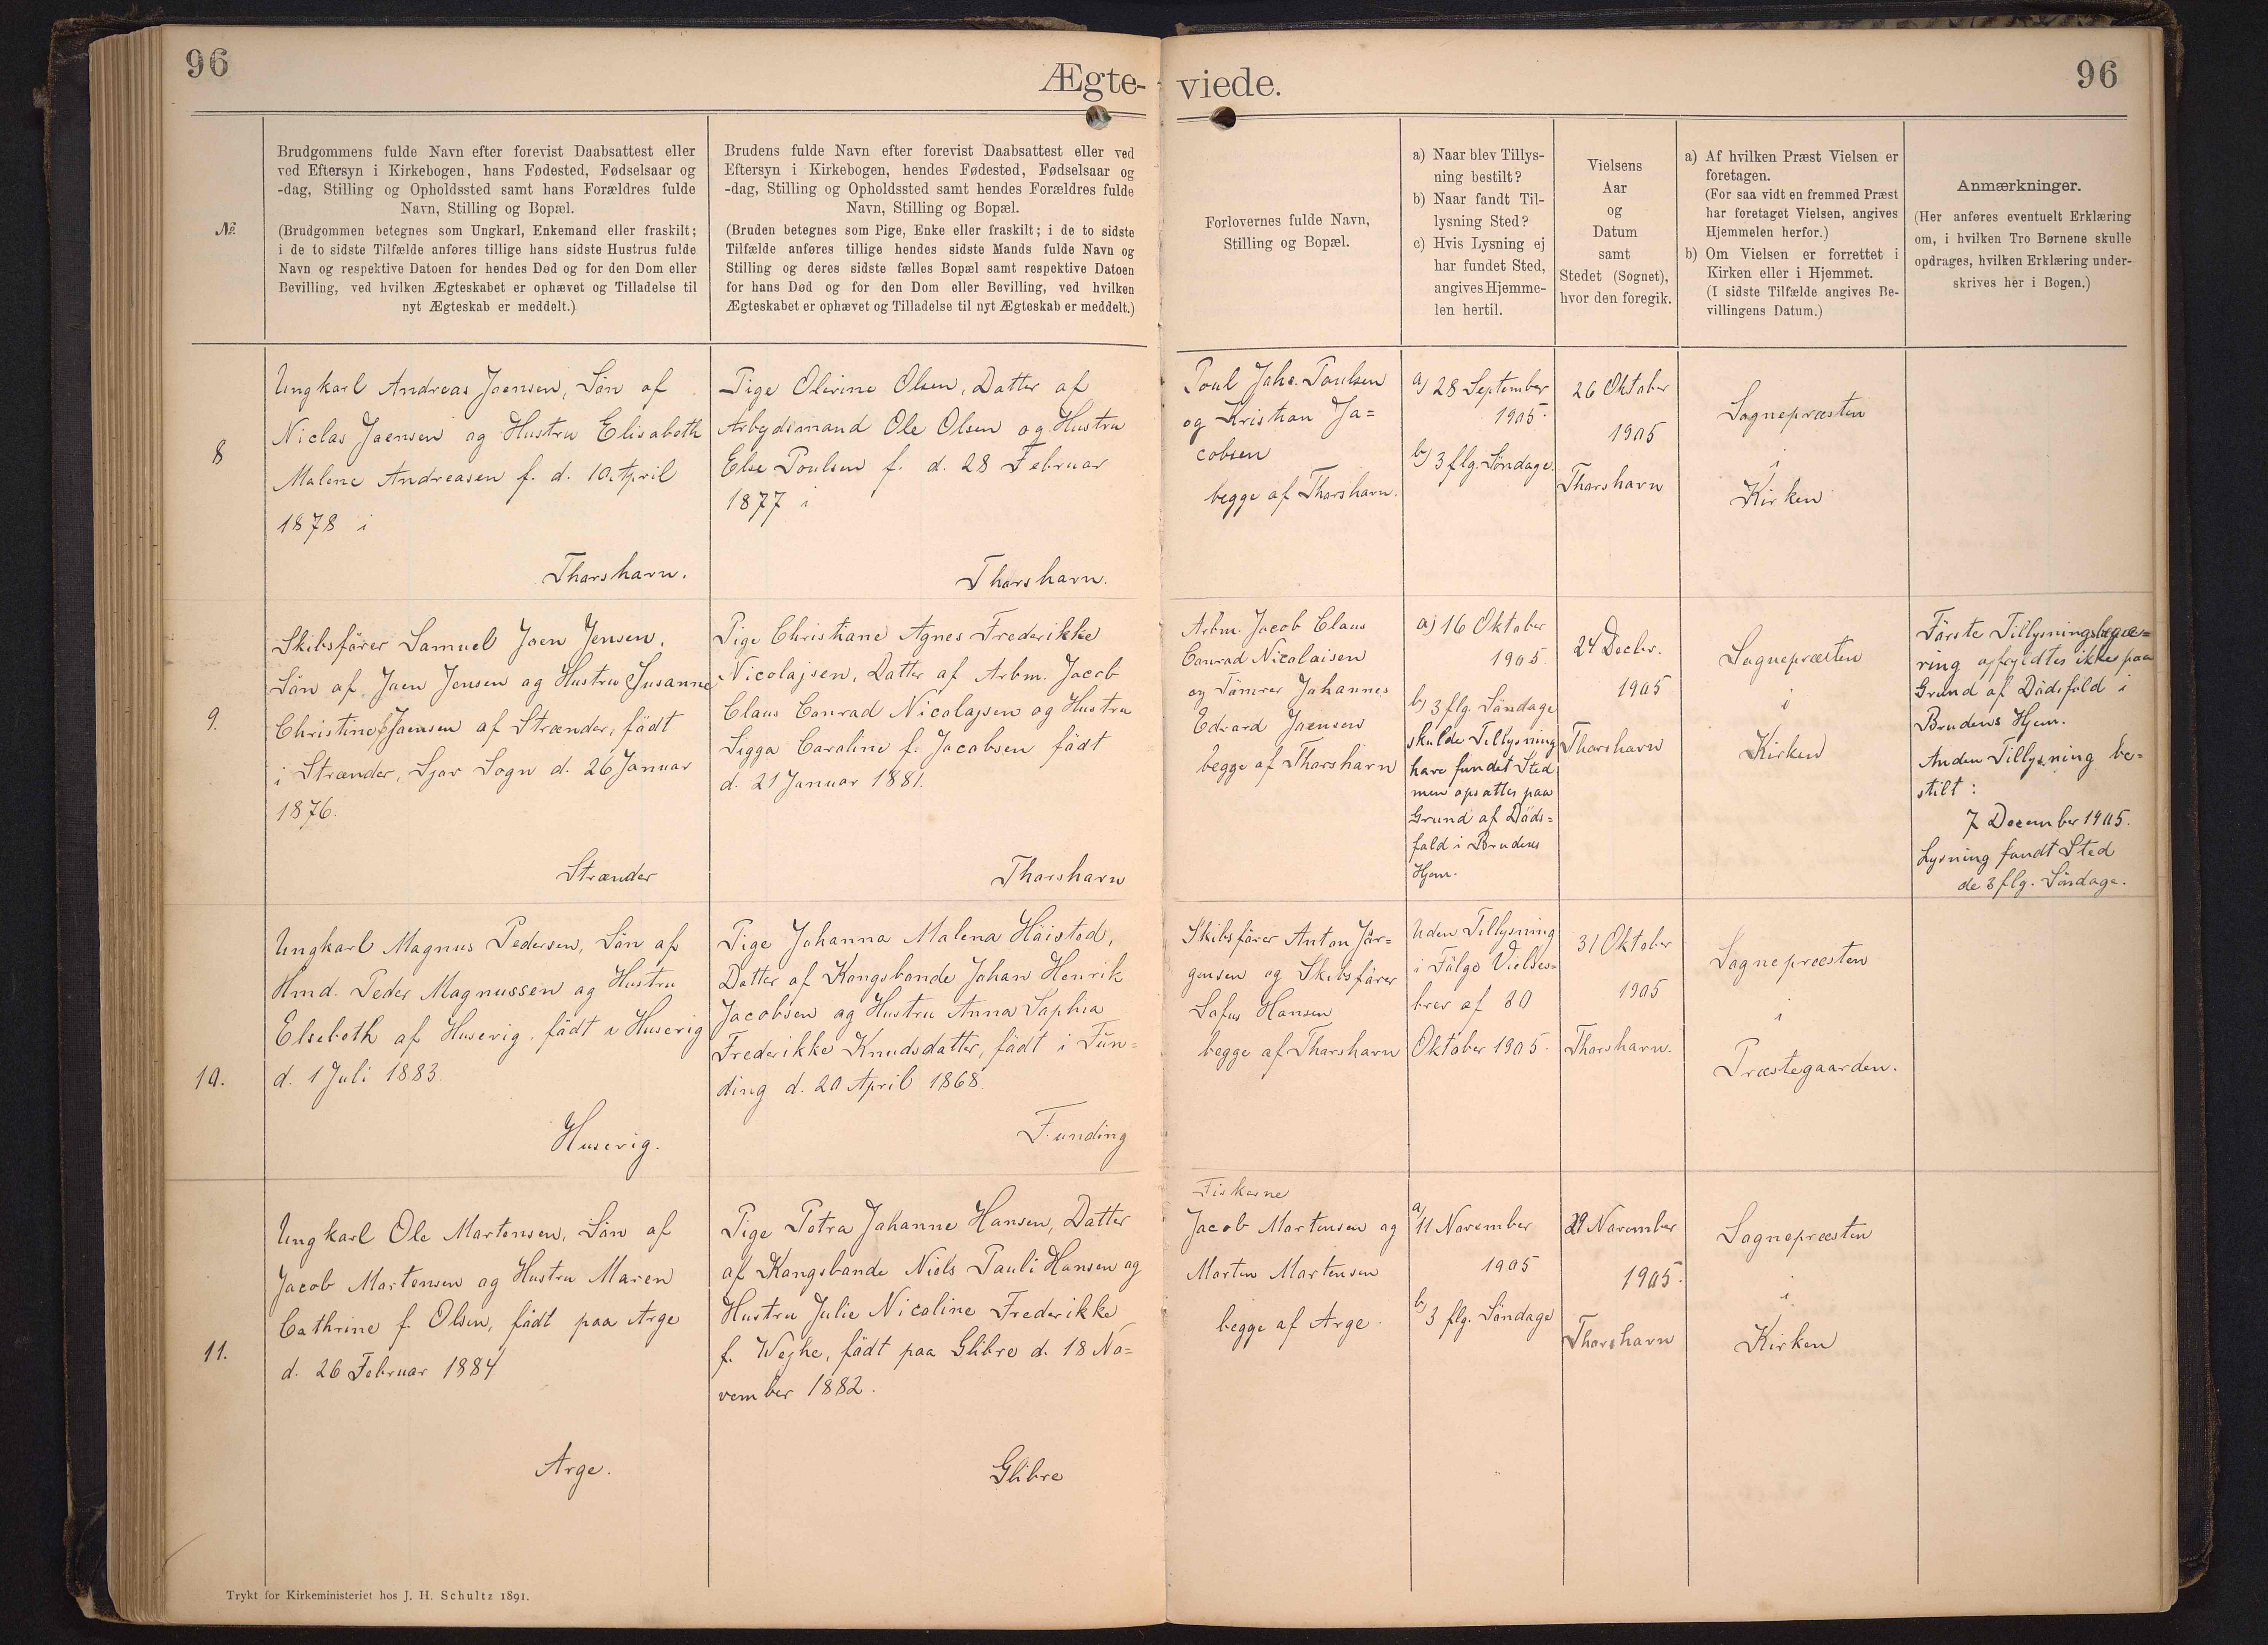 96
Ægte-
viede.
96
№.
Brudgommens fulde Navn efter forevist Daabsattest eller
ved Eftersyn i Kirkebogen, hans Fødested, Fødselsaar og
-dag, Stilling og Opholdssted samt hans Forældres fulde
Navn, Stilling og Bopæl.
(Brudgommen betegnes som Ungkarl, Enkemand eller fraskilt;
i de to sidste Tilfælde anføres tillige hans sidste Hustrus fulde
Navn og respektive Datoen for hendes Død og for den Dom eller
Bevilling, ved hvilken Ægteskabet er ophævet og Tilladelse til
nyt Ægteskab er meddelt.)
Brudens fulde Navn efter forevist Daabsattest eller ved
Eftersyn i Kirkebogen, hendes Fødested, Fødselsaar og
-dag, Stilling og Opholdssted samt hendes Forældres fulde
Navn, Stilling og Bopæl.
(Bruden betegnes som Pige, Enke eller fraskilt; i de to sidste
Tilfælde anføres tillige hendes sidste Mands fulde Navn og
Stilling og deres sidste fælles Bopæl samt respektive Datoen
for hans Død og for den Dom eller Bevilling, ved hvilken
Ægteskabet er ophævet og Tilladelse til nyt Ægteskab er meddelt.)
Forlovernes fulde Navn,
Stilling og Bopæl.
a) Naar blev Tillys-
ning bestilt?
b) Naar fandt Til-
lysning Sted?
c) Hvis Lysning ej
har fundet Sted,
angives Hjemme-
len hertil.
Vielsens
Aar
og
Datum
samt
Stedet (Sognet),
hvor den foregik.
a) Af hvilken Præst Vielsen er
foretagen.
(For saa vidt en fremmed Præst
har foretaget Vielsen, angives
Hjemmelen herfor.)
b) Om Vielsen er forrettet i
Kirken eller i Hjemmet.
(I sidste Tilfælde angives Be-
villingens Datum.)
Anmærkninger.
(Her anføres eventuelt Erklæring
om, i hvilken Tro Børnene skulle
opdrages, hvilken Erklæring under-
skrives her i Bogen.)
8
Ungkarl Andreas Joensen, Sön af
Niclas Joensen og Hustru Elisabeth
Malene Andreasen f. d. 10. April
1878 i
Thorshavn.
Pige Olivine Olsen, Datter af
Arbejdsmand Ole Olsen og Hustru
Else Poulsen f. d. 28 Februar
1877 i
Thorshavn.
Poul Johs. Poulsen
og Kristian Ja=
cobsen
begge af Thorshavn.
a) 28 September
1905.
b) 3 flg. Söndage.
26 Oktober
1905
Thorshavn
Sognepræsten
i
Kirken
9.
Skibsförer Samuel Joen Jensen,
Sön af Joen Jensen og Hustru Susanne
Christine f. Joensen af Strænder, födt
i Strænder, Sjov Sogn d. 26 Januar
1876.
Strænder
Pige Christiane Agnes Frederikke
Nicolajsen, Datter af Arbm. Jacob
Claus Conrad Nicolajsen og Hustru
Sigga Caroline f. Jacobsen födt
d. 21 Januar 1881.
Thorshavn
Arbm. Jacob Claus
Conrad Nicolaisen
og Tömrer Johannes
Edvard Joensen
begge af Thorshavn
a) 16 Oktober
1905.
b) 3 flg. Söndage
skulde Tillysning
have fundet Sted
men opsattes paa
Grund af Döds=
fald i Brudens
Hjem.
24 Decbr.
1905
Thorshavn
Sognepræsten
i
Kirken
Förste Tillysningsbegjæ=
ring opfyldtes ikke paa
Grund af Dödsfald i
Brudens Hjem.
Anden Tillysning be=
stilt:
7 December 1905.
Lysning fandt Sted
de 3 flg. Söndage.
10.
Ungkarl Magnus Pedersen, Sön af
Hmd. Peder Magnussen og Hustru
Elsebeth af Husevig, födt i Husevig
d. 1 Juli 1883.
Husevig.
Pige Johanna Malena Höisted,
Datter af Kongsbonde Johan Henrik
Jacobsen og Hustru Anna Sophia
Frederikke Knudsdatter, födt i Fun=
ding d. 20 April 1868.
Funding
Skibsförer Anton Jör=
gensen og Skibsförer
Sofus Hansen
begge af Thorshavn
Uden Tillysning
i Fölge Vielses=
brev af 30
Oktober 1905.
31 Oktober
1905
Thorshavn.
Sognepræsten
i
Præstegaarden.
11.
Ungkarl Ole Mortensen, Sön af
Jacob Mortensen og Hustru Maren
Cathrine f. Olsen, födt paa Arge
d. 26 Februar 1884
Arge.
Pige Petra Johanne Hansen, Datter
af Kongsbonde Niels Pauli Hansen og
Hustru Julie Nicoline Frederikke
f. Weyhe, födt paa Glibre d. 18 No=
vember 1882.
Glibre
Fiskerne
Jacob Mortensen og
Morten Mortensen
begge af Arge.
a) 11 November
1905
b) 3 flg. Söndage
29 November
1905.
Thorshavn
Sognepræsten
i
Kirken
Trykt for Kirkeministeriet hos J. H. Schultz 1891.